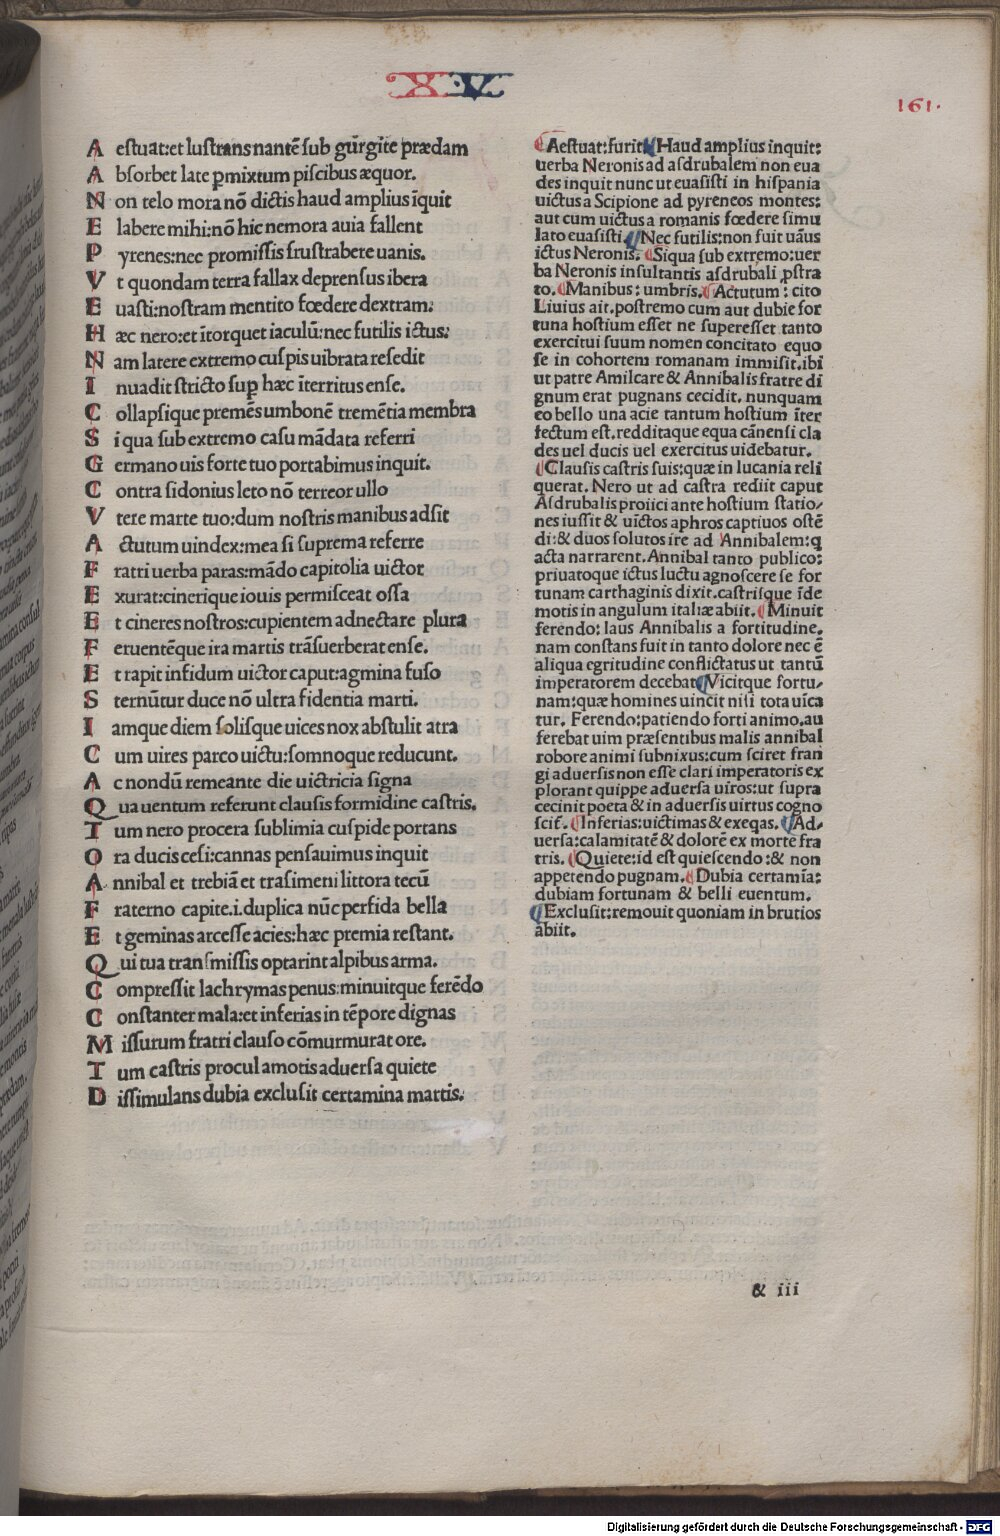 XV
161.
A estuat:et lustrans nantē sub gūrgite prædam
A bsorbet late ꝑmixtum piscibus æquor.
N on telo mora nō dictis haud amplius īquit
E labere mihi:nō hic nemora auia fallent
P yrenes:nec promissis frustrabere uanis.
V t quondam terra fallax deprensus ibera
E uasti:nostram mentito fœdere dextram.
H æc nero:et ītorquet iaculū:nec futilis ictus:
N am latere extremo cuspis uibrata resedit
I nuadit stricto suꝑ hæc īterritus ense.
C ollapsique premēs umbonē tremētia membra
S i qua sub extremo casu mādata referri
G ermano uis forte tuo portabimus inquit.
C ontra sidonius leto nō terreor ullo
V tere marte tuo:dum nostris manibus adsit
A ctutum uindex:mea si suprema referre
F ratri uerba paras:mādo capitolia uictor
E xurat:cinerique iouis permisceat ossa
E t cineres nostros:cupientem adnectare plura
F eruentēque ira martis trāsuerberat ense.
E t rapit infidum uictor caput:agmina fuso
S ternūtur duce nō ultra fidentia marti.
I amque diem solisque uices nox abstulit atra
C um uires parco uictu:somnoque reducunt.
A c nondū remeante die uictricia signa
Q ua uentum referunt clausis formidine castris.
T um nero procera sublimia cuspide portans
O ra ducis cesi:cannas pensauimus inquit
A nnibal et trebiā et trasimeni littora tecū
F raterno capite.i.duplica nūc perfida bella
E t geminas arcesse acies:hæc premia restant.
Q ui tua transmissis optarint alpibus arma.
C ompressit lachrymas penus:minuitque ferēdo
C onstanter mala:et inferias in tēpore dignas
M issurum fratri clauso cōmurmurat ore.
T um castris procul amotis aduersa quiete
D issimulans dubia exclusit certamina martis.
Aestuat:furit. Haud amplius inquit:
uerba Neronis ad asdrubalem non eua
des inquit nunc ut euasisti in hispania
uictus a Scipione ad pyreneos montes:
aut cum uictus a romanis fœdere simu
lato euasisti. Nec futilis:non fuit uāus
ictus Neronis. Siqua sub extremo:uer
ba Neronis insultantis asdrubali ꝓstra
to. Manibus: umbris. Actutum: cito
Liuius ait.postremo cum aut dubie for
tuna hostium esset ne superesset tanto
exercitui suum nomen concitato equo
se in cohortem romanam immisit.ibi
ut patre Amilcare & Annibalis fratre di
gnum erat pugnans cecidit. nunquam
eo bello una acie tantum hostium īter
fectum est.redditaque equa cānensi cla
des uel ducis uel exercitus uidebatur.
Clausis castris suis:quæ in lucania reli
querat. Nero ut ad castra rediit caput
Asdrubalis proiici ante hostium statio-
nes iussit & uīctos aphros captiuos ostē
di:& duos solutos ire ad Annibalem:q
acta narrarent. Annibal tanto publico:
priuatoque ictus luctu agnoscere se for
tunam carthaginis dixit.castrisque īde
motis in angulum italiæ abiit. Minuit
ferendo: laus Annibalis a fortitudine.
nam constans fuit in tanto dolore nec ē
aliqua egritudine conflictatus ut tantū
imperatorem decebat. Vicitque fortu-
nam:quæ homines uincit nisi tota uīca
tur. Ferendo:patiendo forti animo.au
ferebat uim præsentibus malis annibal
robore animi subnixus:cum sciret fran
gi aduersis non esse clari imperatoris ex
plorant quippe aduersa uiros:ut supra
cecinit poeta & in aduersis uirtus cogno
scit̄. Inferias:uictimas & exeqas. Ad-
uersa:calamitatē & dolorē ex morte fra
tris. Quiete:id est quiescendo:& non
appetendo pugnam. Dubia certamīa:
dubiam fortunam & belli euentum.
Exclusit:remouit quoniam in brutios
abiit.
& iii
Digitalisierung gefördert durch die Deutsche Forschungsgemeinschaft - DFG